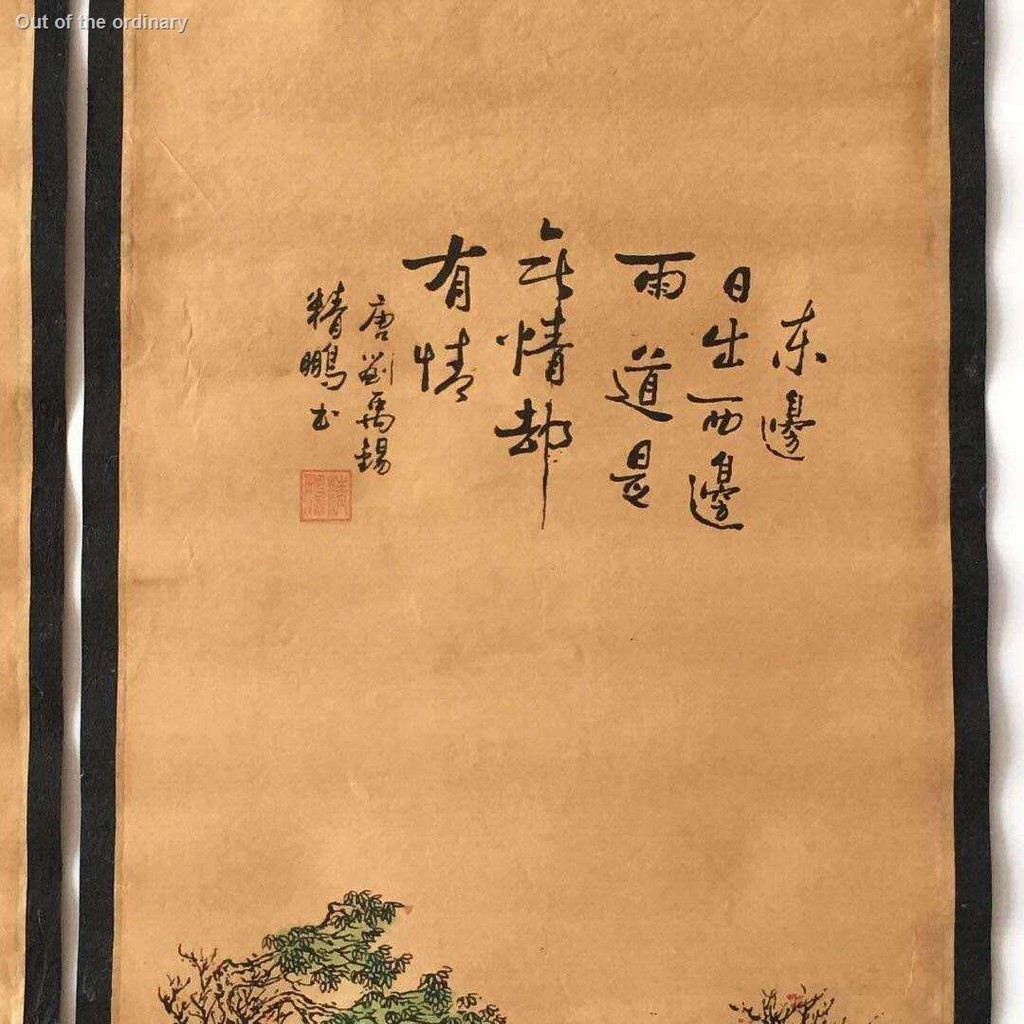 Out of the ordinary
东邊
日出西邊
雨道是
无情却
有情
唐劉禹錫
精鵬书